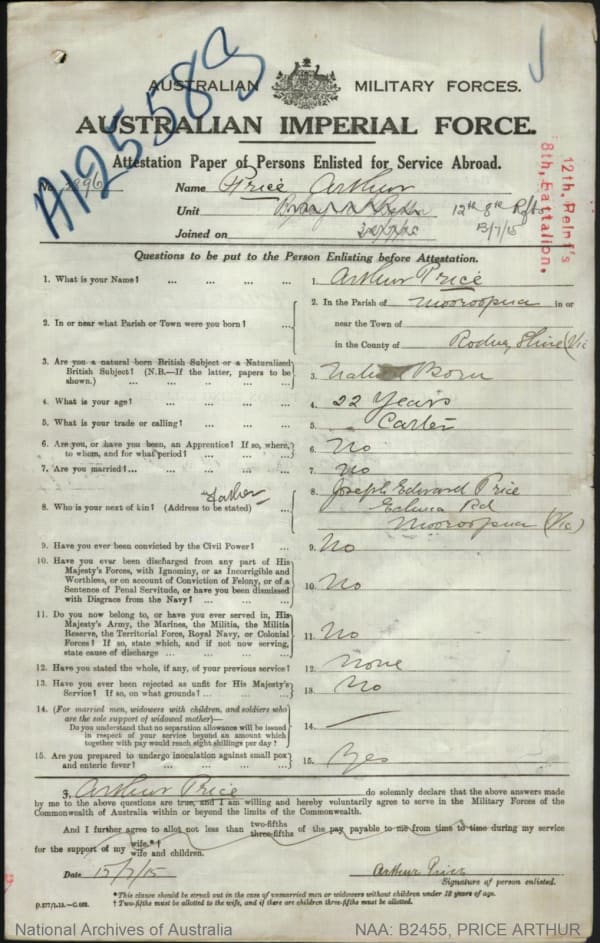 A125583
AUSTRALIAN MILITARY FORCES.
AUSTRALIAN IMPERIAL FORCE.
Attestation Paper of Persons Enlisted for Service Abroad.
No. Name Price Arthur
Unit 12th 8th Rfts
Joined on 13/7/15
12th. Reint's
8th. Battalion.
Questions to be put to the Person Enlisting before Attestation.
1. What is your Name? ... ... ... ... 1. Arthur Price
2. In or near what Parish or Town were you born? ... 2. In the Parish of Mooroopna in or
near the Town of
in the County of Rodney Shire (Vic
3. Are you a natural born British Subject or a Naturalized
British Subject? (N.B.—If the latter, papers to be
shown.) ... ... ... ... ... 3. Natural Born
4. What is your age? ... ... ... ... 4. 22 Years
5. What is your trade or calling? ... ... ... 5. Carter
6. Are you, or have you been, an Apprentice? If so, where,
to whom, and for what period? ... ... ... 6. No
7. Are you married?... ... ... ... ... 7. No
Father
8. Who is your next of kin? (Address to be stated) ... 8. Joseph Edward Price
Echuca Rd
Mooroopna (Vic)
9. Have you ever been convicted by the Civil Power? ... 9. No
10. Have you ever been discharged from any part of His
Majesty's Forces, with Ignominy, or as Incorrigible and
Worthless, or on account of Conviction of Felony, or of a
Sentence of Penal Servitude, or have you been dismissed
with Disgrace from the Navy? ... ... ... 10. No
11. Do you now belong to, or have you ever served in, His
Majesty's Army, the Marines, the Militia, the Militia
Reserve, the Territorial Force, Royal Navy, or Colonial
Forces? If so, state which, and if not now serving,
state cause of discharge ... ... ... ... 11. No
12. Have you stated the whole, if any, of your previous service? 12. None
13. Have you ever been rejected as unfit for His Majesty's
Service? If so, on what grounds? ... ... ... 13. No
14. (For married men, widowers with children, and soldiers who
are the sole support of widowed mother)—
Do you understand that no separation allowance will be issued
in respect of your service beyond an amount which
together with pay would reach eight shillings per day? 14. —
15. Are you prepared to undergo inoculation against small pox
and enteric fever? ... ... ... ... 15. Yes
I, Arthur Price do solemnly declare that the above answers made
by me to the above questions are true, and I am willing and hereby voluntarily agree to serve in the Military Forces of the
Commonwealth of Australia within or beyond the limits of the Commonwealth.
And I further agree to allot not less than two-fifths three-fifths of the pay payable to me from time to time during my service
for the support of my wife.*† wife and children.
Date Arthur Price
Signature of person enlisted.
* This clause should be struck out in the case of unmarried men or widowers without children under 18 years of age.
† Two-fifths must be allotted to the wife, and if there are children three-fifths must be allotted.
National Archives of Australia NAA: B2455, PRICE ARTHUR